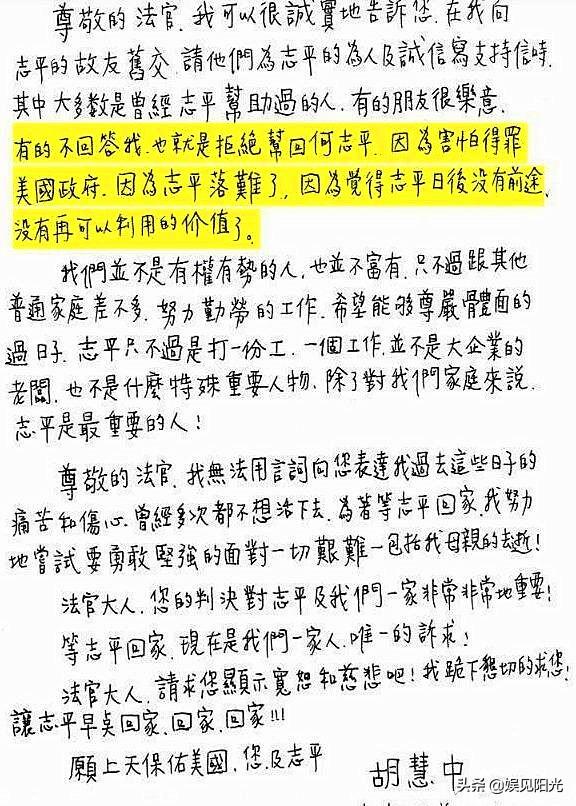 尊敬的法官.我可以很誠實地告訴您.在我向
志平的故友舊交.請他們為志平的為人及誠信寫支持信時.
其中大多數是曾經志平幫助過的人.有的朋友很樂意.
有的不回答我.也就是拒絕幫回何志平.因為害怕得罪
美國政府.因為志平落難了,因為覺得志平日後沒有前途,
沒有再可以利用的价值了。
我們並不是有權有勢的人,也並不富有.只不過跟其他
普通家庭差不多.努力勤勞的工作.希望能够尊嚴體面的
過日子.志平只不過是打一份工.一個工作.並不是大企業的
老闆.也不是什麼特殊重要人物、除了對我們家庭來說.
志平是最重要的人!
尊敬的法官.我無法用言詞向您表達我過去這些日子的
痛苦和傷心.曾經多次都不想活下去.為著等志平回家.我努力
地嘗試要勇敢堅強的面對一切艱難一包括我母親的去逝!
法官大人.您的判決對志平及我們一家非常非常地重要!
等志平回家.現在是我們一家人.唯一的訴求!
法官大人.請求您顯示寬恕和慈悲吧!我跪下懇切的求您!
讓志平早点回家.回家.回家!!!
願上天保佑美國.您.及志平
胡慧中
头条 @娱见阳光